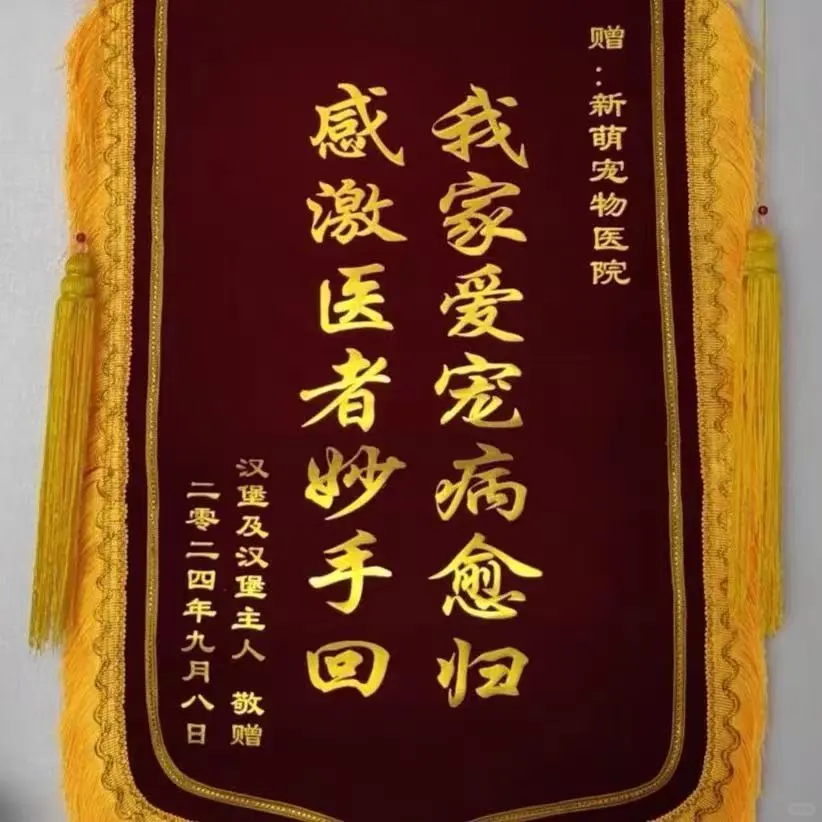 赠：新萌宠物医院
我家爱宠病愈归
感激医者妙手回
汉堡及汉堡主人 敬赠
二零二四年九月八日